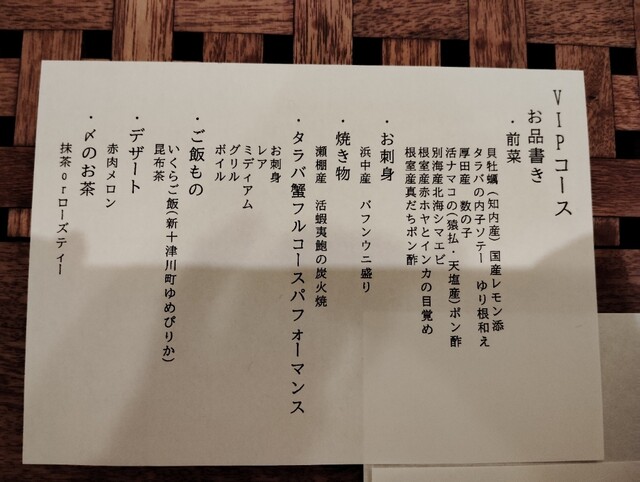 VIPコース
お品書き
・前菜
貝牡蠣(知内産)国産レモン添
タラバの内子ソテー　ゆり根和え
厚田産　数の子
活ナマコの(猿払・天塩産)ポン酢
別海産北海シマエビ
根室産赤ホヤとインカの目覚め
根室産真だちポン酢
・お刺身
浜中産　バフンウニ盛り
・焼き物
瀬棚産　活蝦夷鮑の炭火焼
・タラバ蟹フルコースパフォーマンス
お刺身
レア
ミディアム
グリル
ボイル
・ご飯もの
いくらご飯(新十津川町ゆめぴりか)
昆布茶
・デザート
赤肉メロン
・〆のお茶
抹茶orローズティー